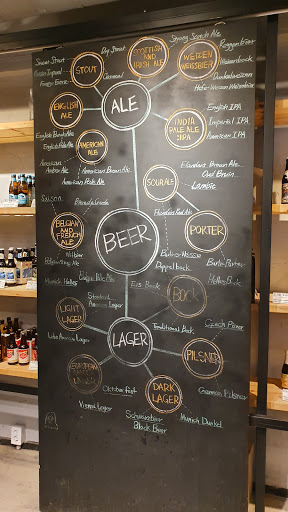 Dry Stout
SCOTTISH
AND
IRISH ALE
Strong Scotch Ale
STOUT
WEIZEN
WEISSBIER
Roggenbier
Weizenbock
Dunkelweizen
Oatmeal
ENGLISH
ALE
ALE
INDIA
PALE ALE
:IPA
English IPA
Imperial IPA
American IPA
AMERICAN
ALE
English Pale Ale
American
Amber Ale
American Brown Ale
American Pale Ale
SOUR ALE
Flanders Brown Ale
Oud Bruin
Lambic
Saison
Flanders Red Ale
BELGIAN
AND
FRENCH
ALE
BEER
PORTER
Witbier
Berliner Weisse
Doppelbock
Baltic Porter
Munich Helles
Belgian Pale Ale
Eis Bock
BOCK
Helles Bock
LIGHT
LAGER
Standard
American Lager
Lite American Lager
LAGER
Traditional Bock
Czech Pilsner
PILSNER
EUROPEAN
Oktoberfest
DARK
LAGER
German Pilsner
Vienna Lager
Schwarzbier
Black Beer
Munich Dunkel